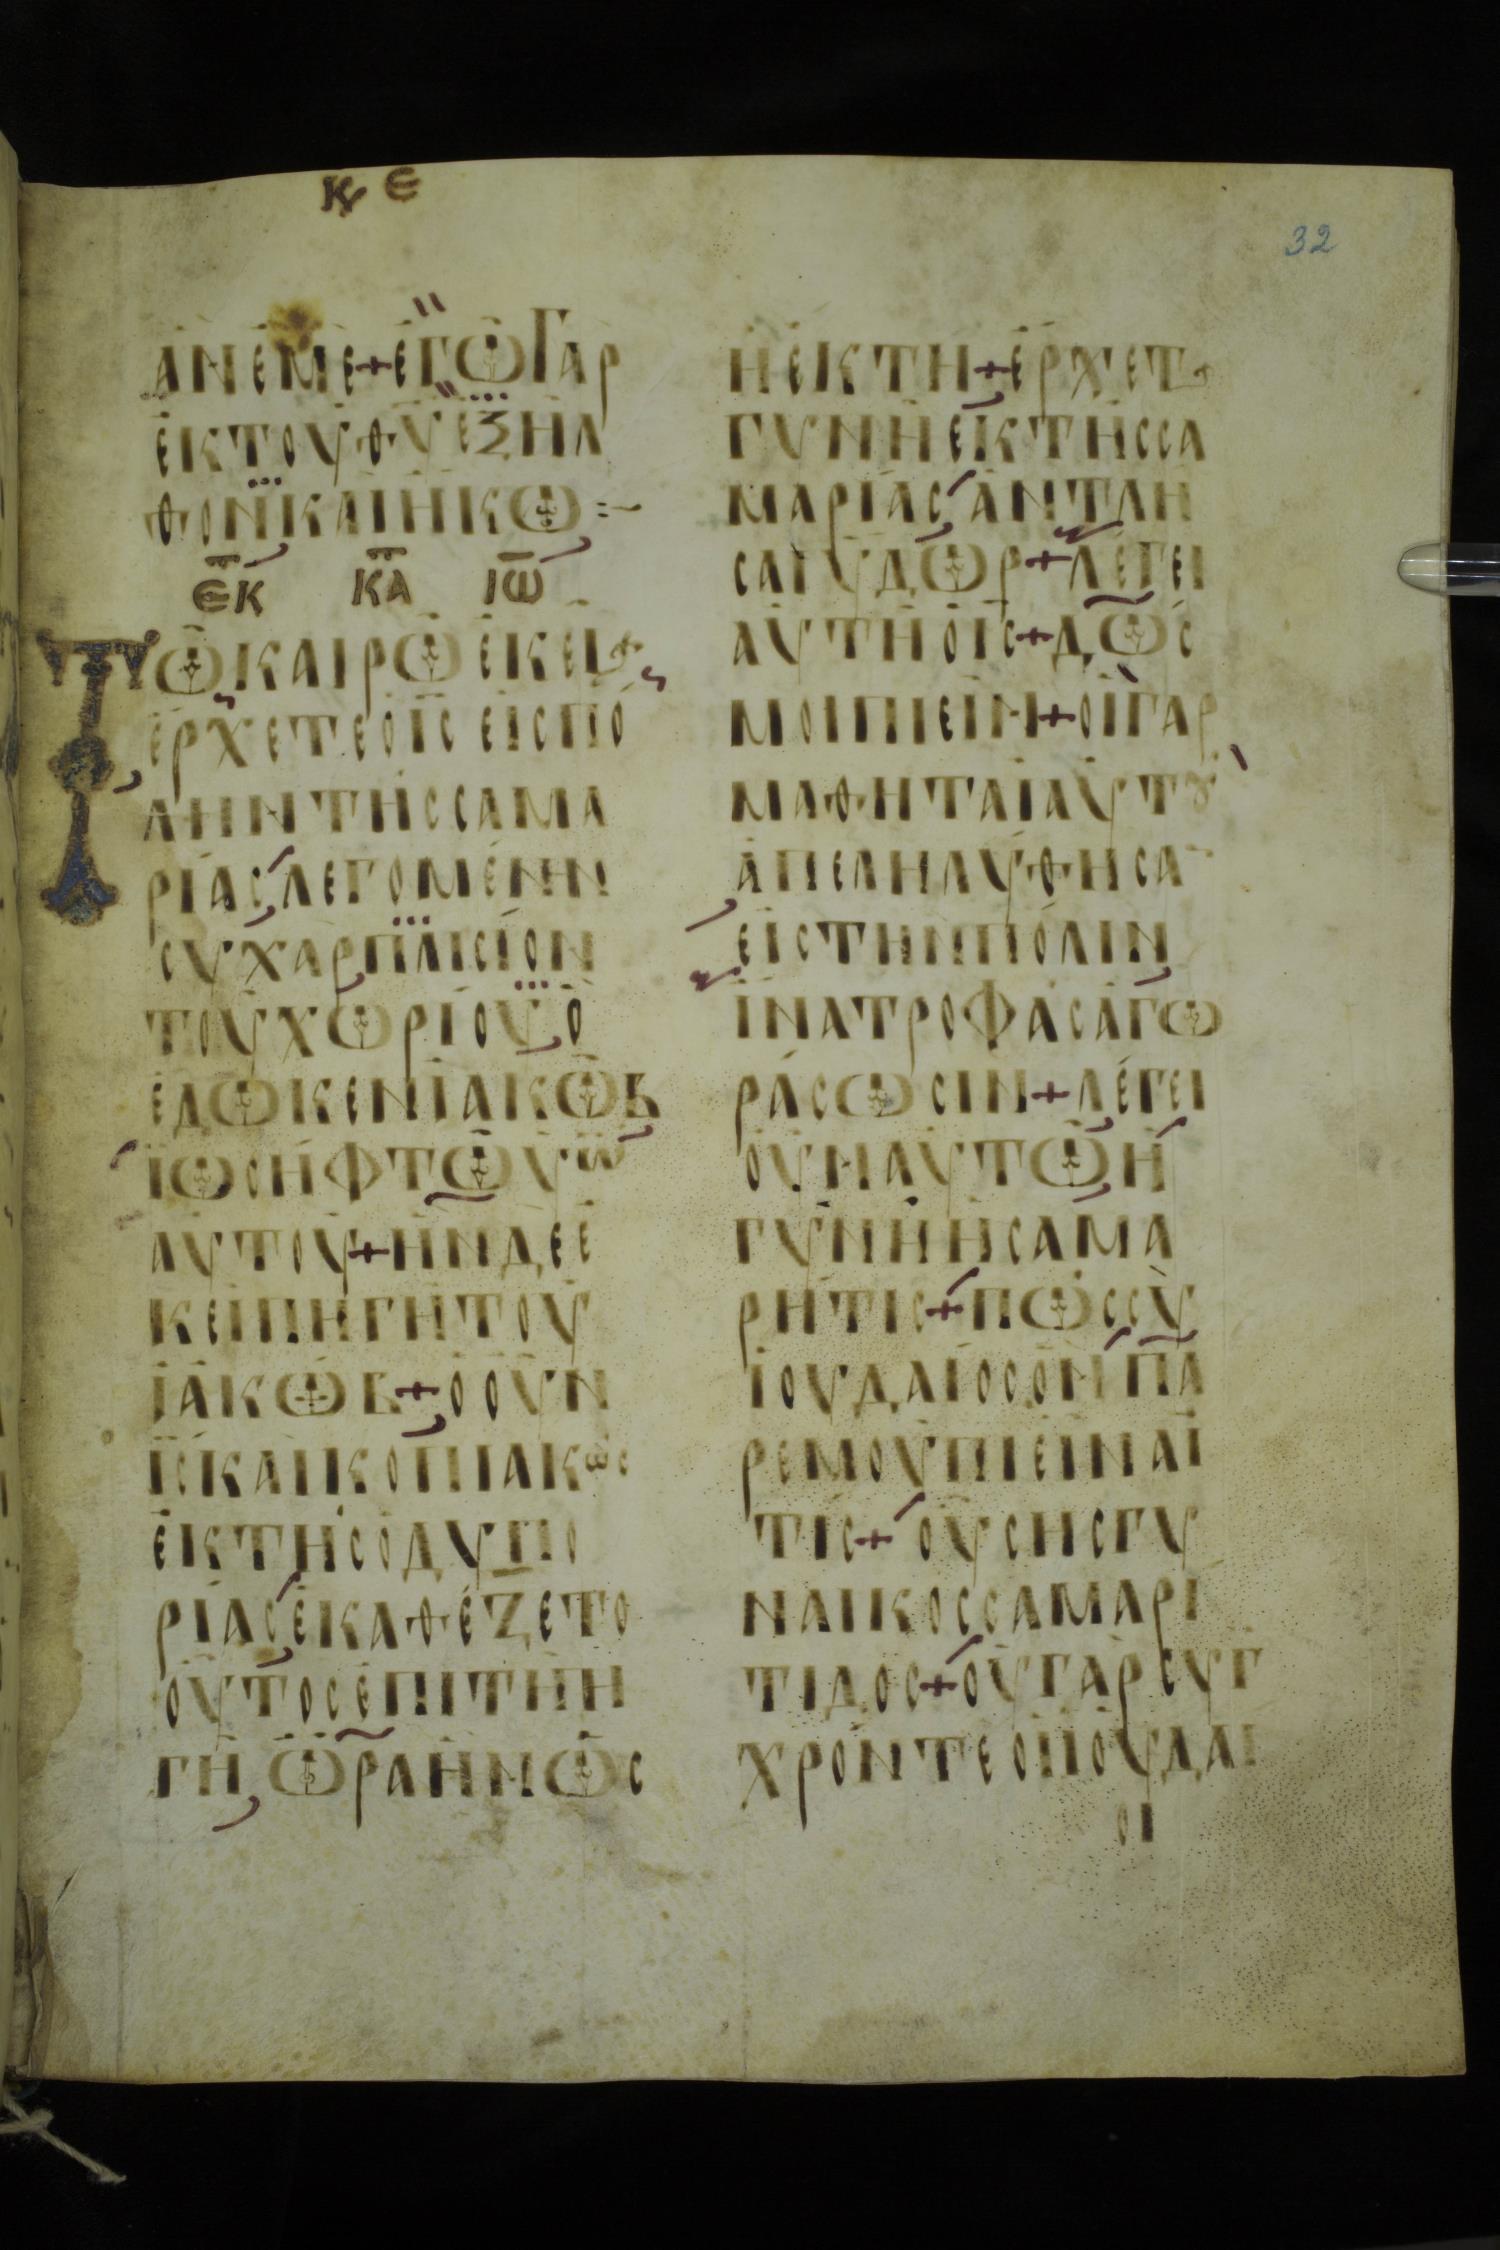 κς ε
32
ΑΝ ΕΜΕ + ΕΓΩ ΓΑΡ
ΕΚ ΤΟΥ ΘΥ ΕΞΗΛ
ΘΟΝ ΚΑΙ ΗΚΩ :~
ΕΚ ΚΑ ΙΩ
ΤΩ ΚΑΙΡΩ ΕΚΕΙ
ΕΡΧΕΤΕ Ο ΙΣ ΕΙΣ ΠΟ
ΛΗΝ ΤΗΣ ΣΑΜΑ
ΡΙΑΣ ΛΕΓΟΜΕΝΗΝ
ΣΥΧΑΡ ΠΛΙΣΙΟΝ
ΤΟΥ ΧΩΡΙΟΥ Ο
ΕΔΩΚΕΝ ΙΑΚΩΒ
ΙΩΣΗΦ ΤΩ ΥΩ
ΑΥΤΟΥ + ΗΝ ΔΕ Ε
ΚΕΙ ΠΗΓΗ ΤΟΥ
ΙΑΚΩΒ + Ο ΟΥΝ
ΙΣ ΚΑΙΚΟΠΙΑΚΩΣ
ΕΚ ΤΗΣ ΟΔΥΠΟ
ΡΙΑΣ ΕΚΑΘΕΖΕΤΟ
ΟΥΤΟΣ ΕΠΙ ΤΗ ΠΗ
ΓΗ ΩΡΑ ΗΝ ΩΣ
Η ΕΚΤΗ + ΕΡΧΕΤ
ΓΥΝΗ ΕΚ ΤΗΣ ΣΑ
ΜΑΡΙΑΣ ΑΝΤΛΗ
ΣΑΙ ΥΔΩΡ + ΛΕΓΕΙ
ΑΥΤΗ Ο ΙΣ + ΔΩΣ
ΜΟΙ ΠΙΕΙΝ + ΟΙ ΓΑΡ
ΜΑΘΗΤΑΙ ΑΥΤȢ
ΑΠΕΛΗΛΥΘΗΣΑ
ΕΙΣ ΤΗΝ ΠΟΛΙΝ
ΙΝΑ ΤΡΟΦΑΣ ΑΓΩ
ΡΑΣΩΣΙΝ + ΛΕΓΕΙ
ΟΥΝ ΑΥΤΩ Η
ΓΥΝΗ Η ΣΑΜΑ
ΡΗΤΙΣ + ΠΩΣ ΣΥ
ΙΟΥΔΑΙΟΣ ΟΝ ΠΑ
Ρ ΕΜΟΥ ΠΙΕΙΝ ΑΙ
ΤΙΣ + ΟΥΣΗΣ ΓΥ
ΝΑΙΚΟΣ ΣΑΜΑΡΙ
ΤΙΔΟΣ + ΟΥ ΓΑΡ ΣΥΓ
ΧΡΟΝΤΕ ΟΙ ΙΟΥΔΑΙ
ΟΙ